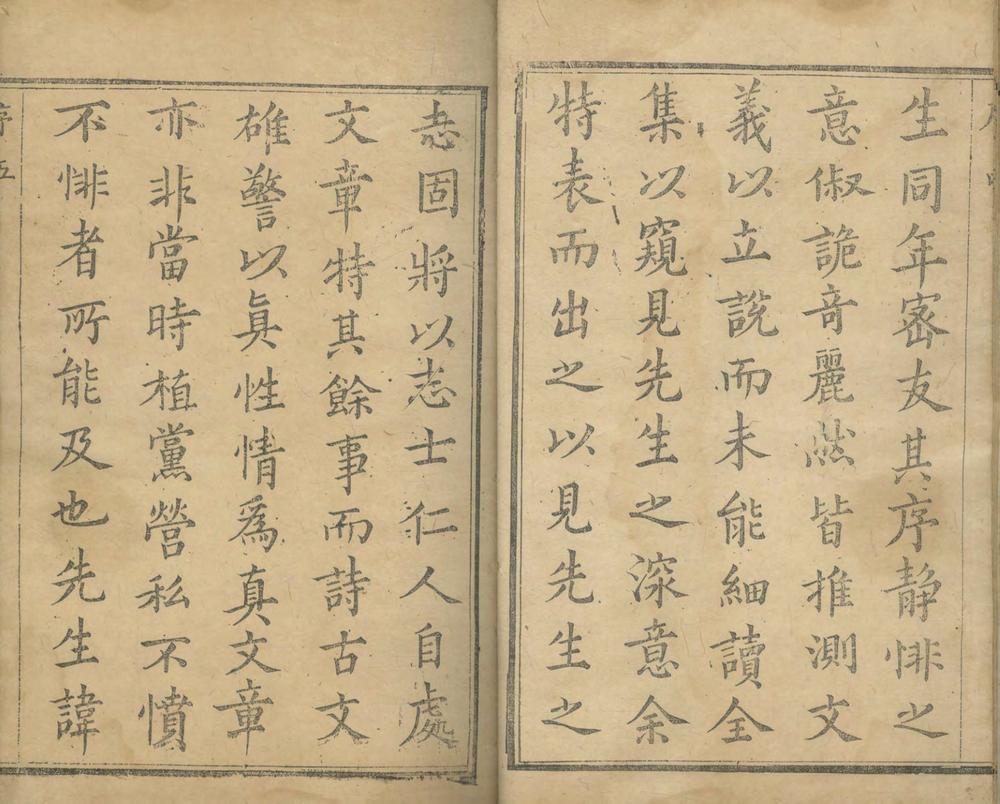 生同年密友其序静悱之
意俶詭竒麗然皆推測文
義以立說而未能細讀全
集以窺見先生之深意余
特表而出之以見先生之
恚固將以志士仁人自處
文章特其餘事而詩古文
雄警以眞性情爲真文章
亦非當時植黨營私不憤
不悱者所能及也先生諱
五